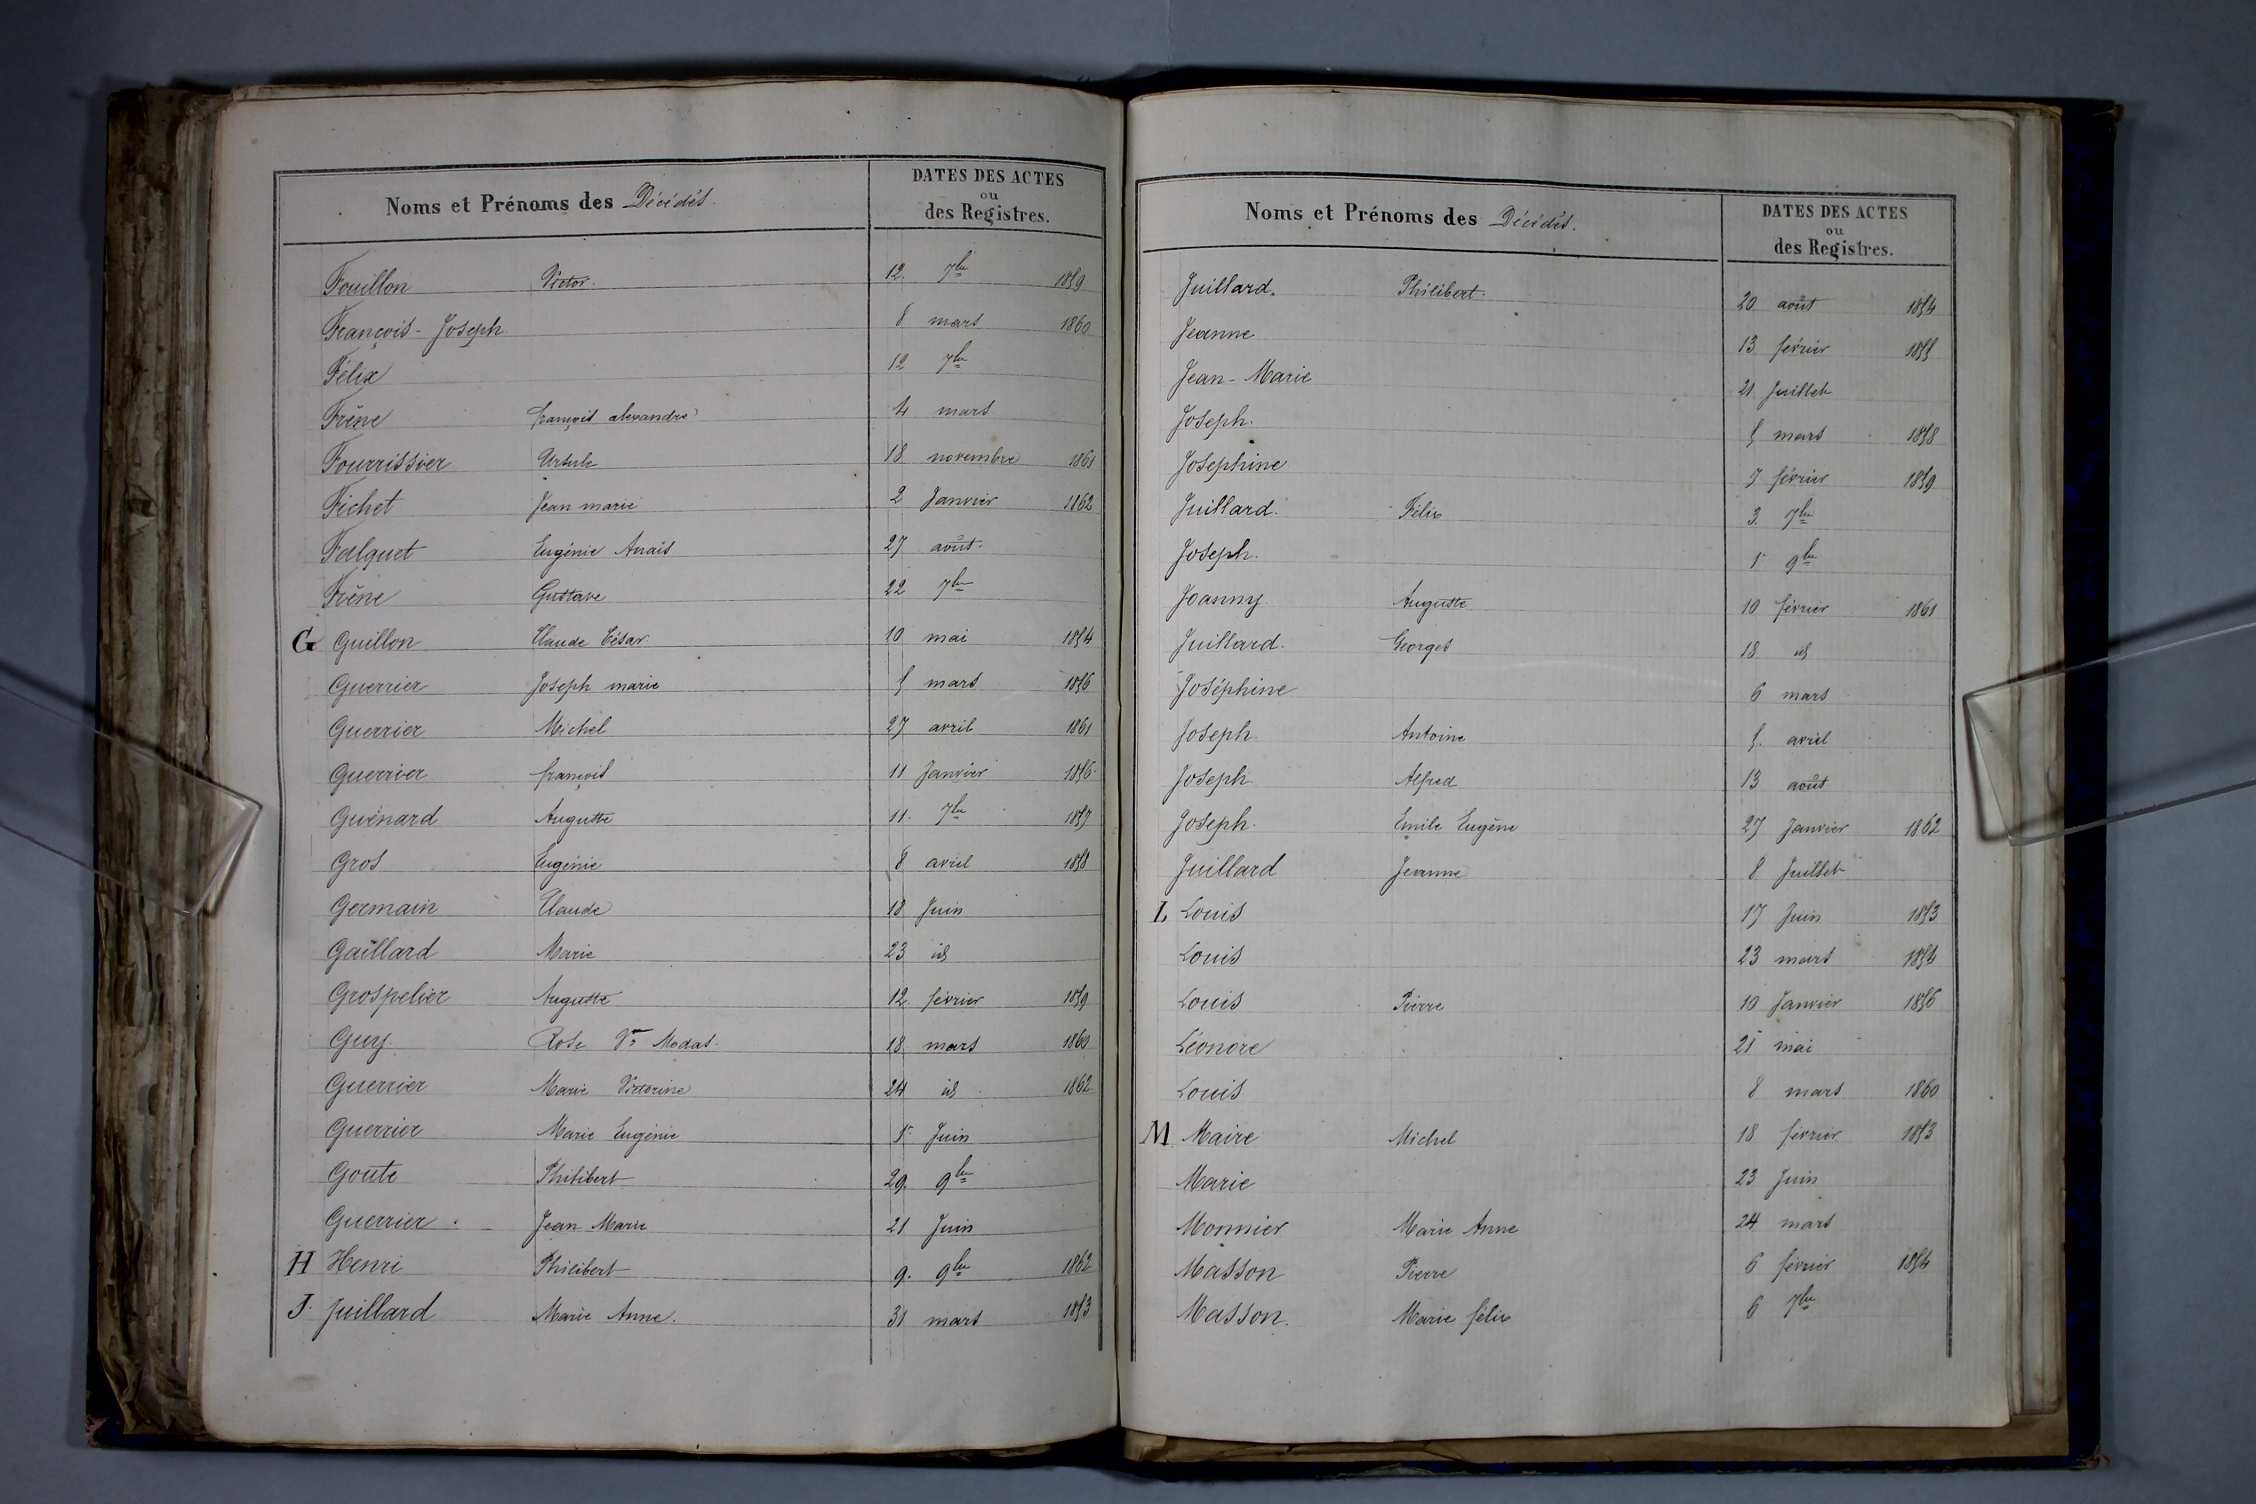 Noms et Prénoms des Décédés.
DATES DES ACTES
ou
des Registres.
Fouillon Victor. 12. 7bre 1859
François-Joseph 8 mars 1860
Félix 12 7bre
Frêne françois alexandre 4 mars
Fourrissier Ursule 18 novembre 1861
Fichet Jean marie 2 Janvier 1862
Falquet Eugénie Anaïs 27 août.
Frêne Gustave 22 7bre
G Guillon Claude César. 10 mai 1854
Guerrier Joseph marie 5 mars 1856
Guerrier Michel 27 avril 1861
Guerrier françois 11 Janvier 1856
Guénard Auguste 11. 7bre 1857
Gros Eugénie 8 avril 1858
Germain Claude 18 Juin
Gaillard Marie 23 id
Grospelier Auguste 12 février 1859
Guy Rose Ve Modas. 18 mars 1860
Guerrier Marie Victorine 24 id 1862
Guerrier Marie Eugénie 1er Juin
Goute Philibert 29. 9bre
Guerrier. Jean Marie 21 Juin
H Henri Philibert 9. 9bre 1862
J. Juillard Marie Anne. 31 mars 1853
Noms et Prénoms des Décédés.
DATES DES ACTES
ou
des Registres.
Juillard. Philibert. 20 août 1854
Jeanne 13 février 1855
Jean-Marie 21 Juillet
Joseph. 5 mars 1858
Josephine 7 février 1859
Juillard. Félix 3. 7bre
Joseph. 1er 9bre
Joanny Auguste 10 février 1861
Juillard. Georges 18 id
Joséphine 6 mars
Joseph Antoine 5. avril
Joseph Alfred 13 août
Joseph. Emile Eugène 27 Janvier 1862
Juillard Jeanne 8 Juillet
L Louis 17 Juin 1853
Louis 23 mars 1854
Louis Pierre 10 Janvier 1856
Léonore 21 mai
Louis 8 mars 1860
M Maire Michel 18 février 1853
Marie 23 Juin
Monnier Marie Anne 24 mars
Masson Pierre 6 février 1854
Masson. Marie félix 6 7bre